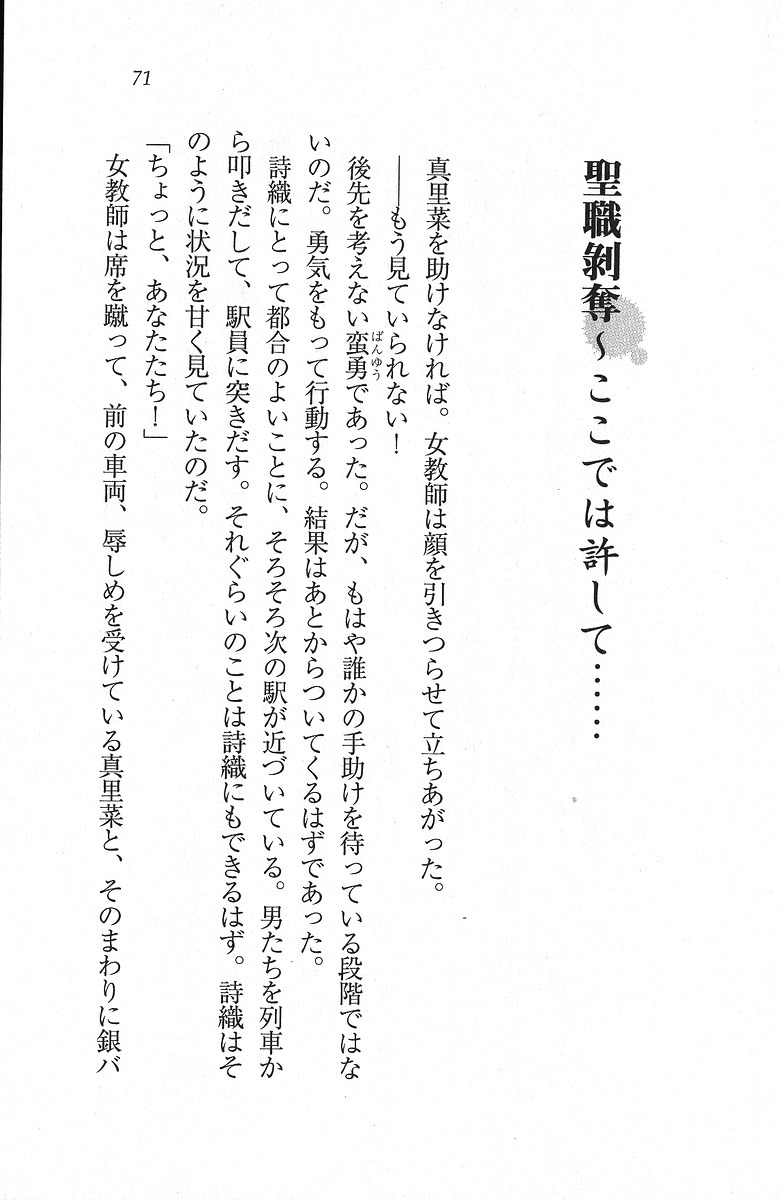 71
聖職剝奪～ここでは許して……
真里菜を助けなければ。女教師は顔を引きつらせて立ちあがった。
――もう見ていられない！
後先を考えない蛮勇であった。だが、もはや誰かの手助けを待っている段階ではな
ばんゆう
いのだ。勇気をもって行動する。結果はあとからついてくるはずであった。
詩織にとって都合のよいことに、そろそろ次の駅が近づいている。男たちを列車か
ら叩きだして、駅員に突きだす。それぐらいのことは詩織にもできるはず。詩織はそ
のように状況を甘く見ていたのだ。
「ちょっと、あなたたち！」
女教師は席を蹴って、前の車両、辱しめを受けている真里菜と、そのまわりに銀バ